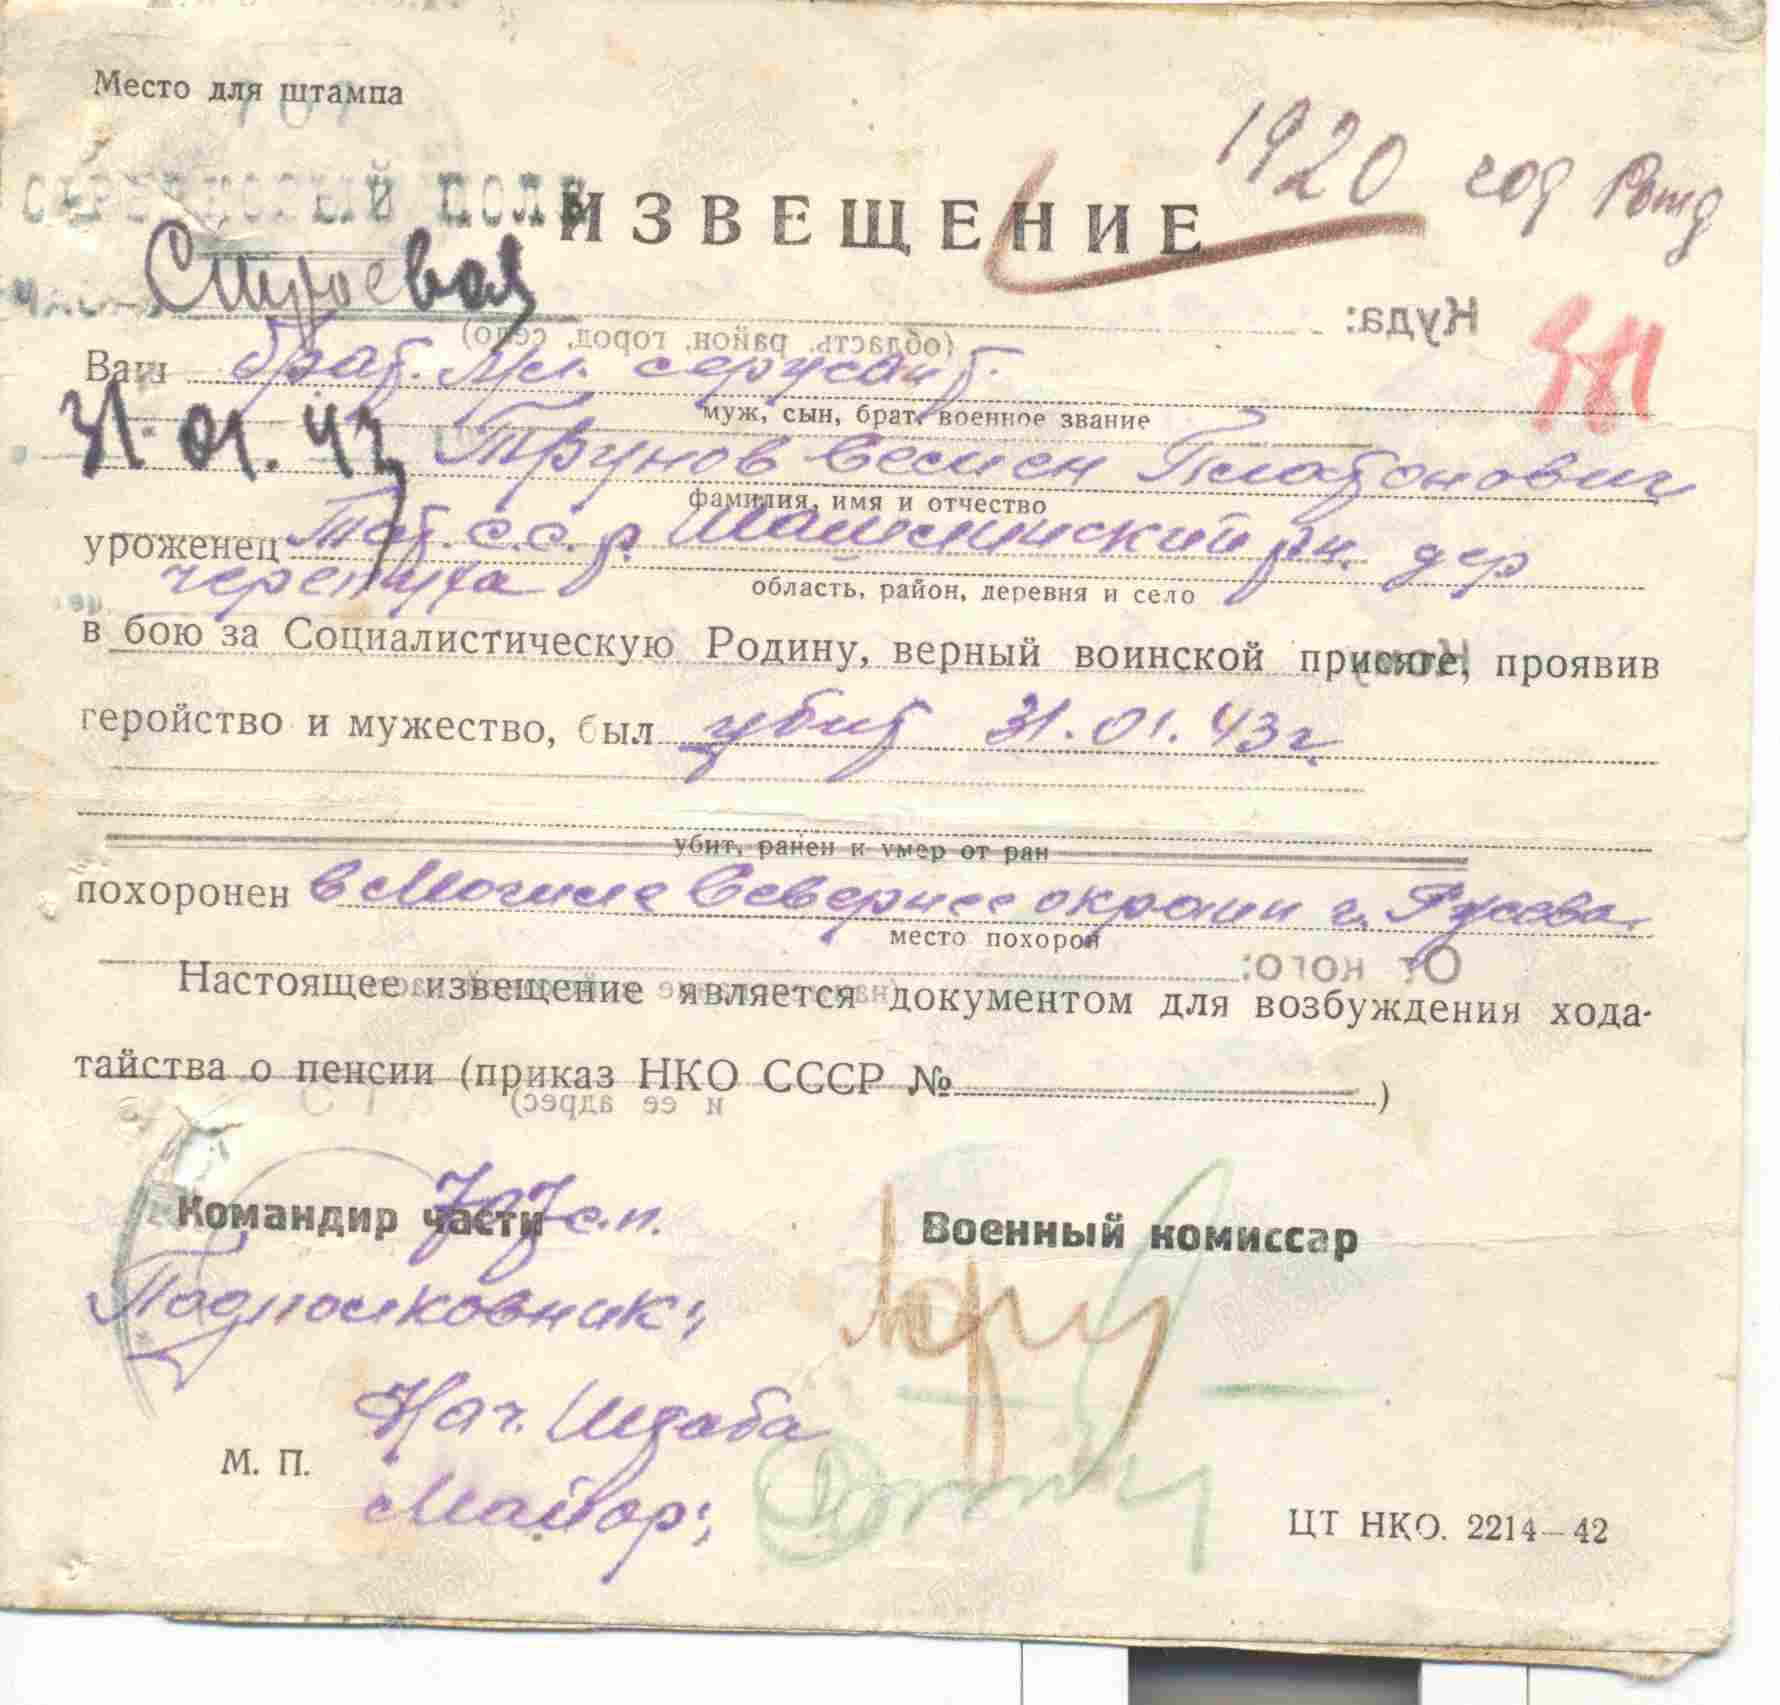 Место для штампа
1920 год Рожд
ИЗВЕЩЕНИЕ
Строевая
Куда:
(область, район, город, село)
Ваш брат. Мл. сержант.
муж, сын, брат, военное звание
31.01.43 Трунов Семен Платонович
фамилия, имя и отчество
уроженец Тат.С.С.р. р.н. дер
черепуха
область, район, деревня и село
в бою за Социалистическую Родину, верный воинской присяге, проявив
геройство и мужество, был убит 31.01.43г.
убит, ранен и умер от ран
похоронен в Могиле Севернее окраин г. Ржева.
место похорон
От кого:
Настоящее извещение является документом для возбуждения хода-
тайства о пенсии (приказ НКО СССР №)
и ее адрес)
Командир части с.п.
Военный комиссар
Подполковник:
Нач. Штаба
М. П.
Майор:
ЦТ НКО. 2214—42